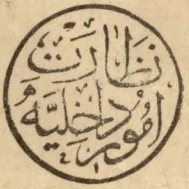 نظارت
امور داخلیه